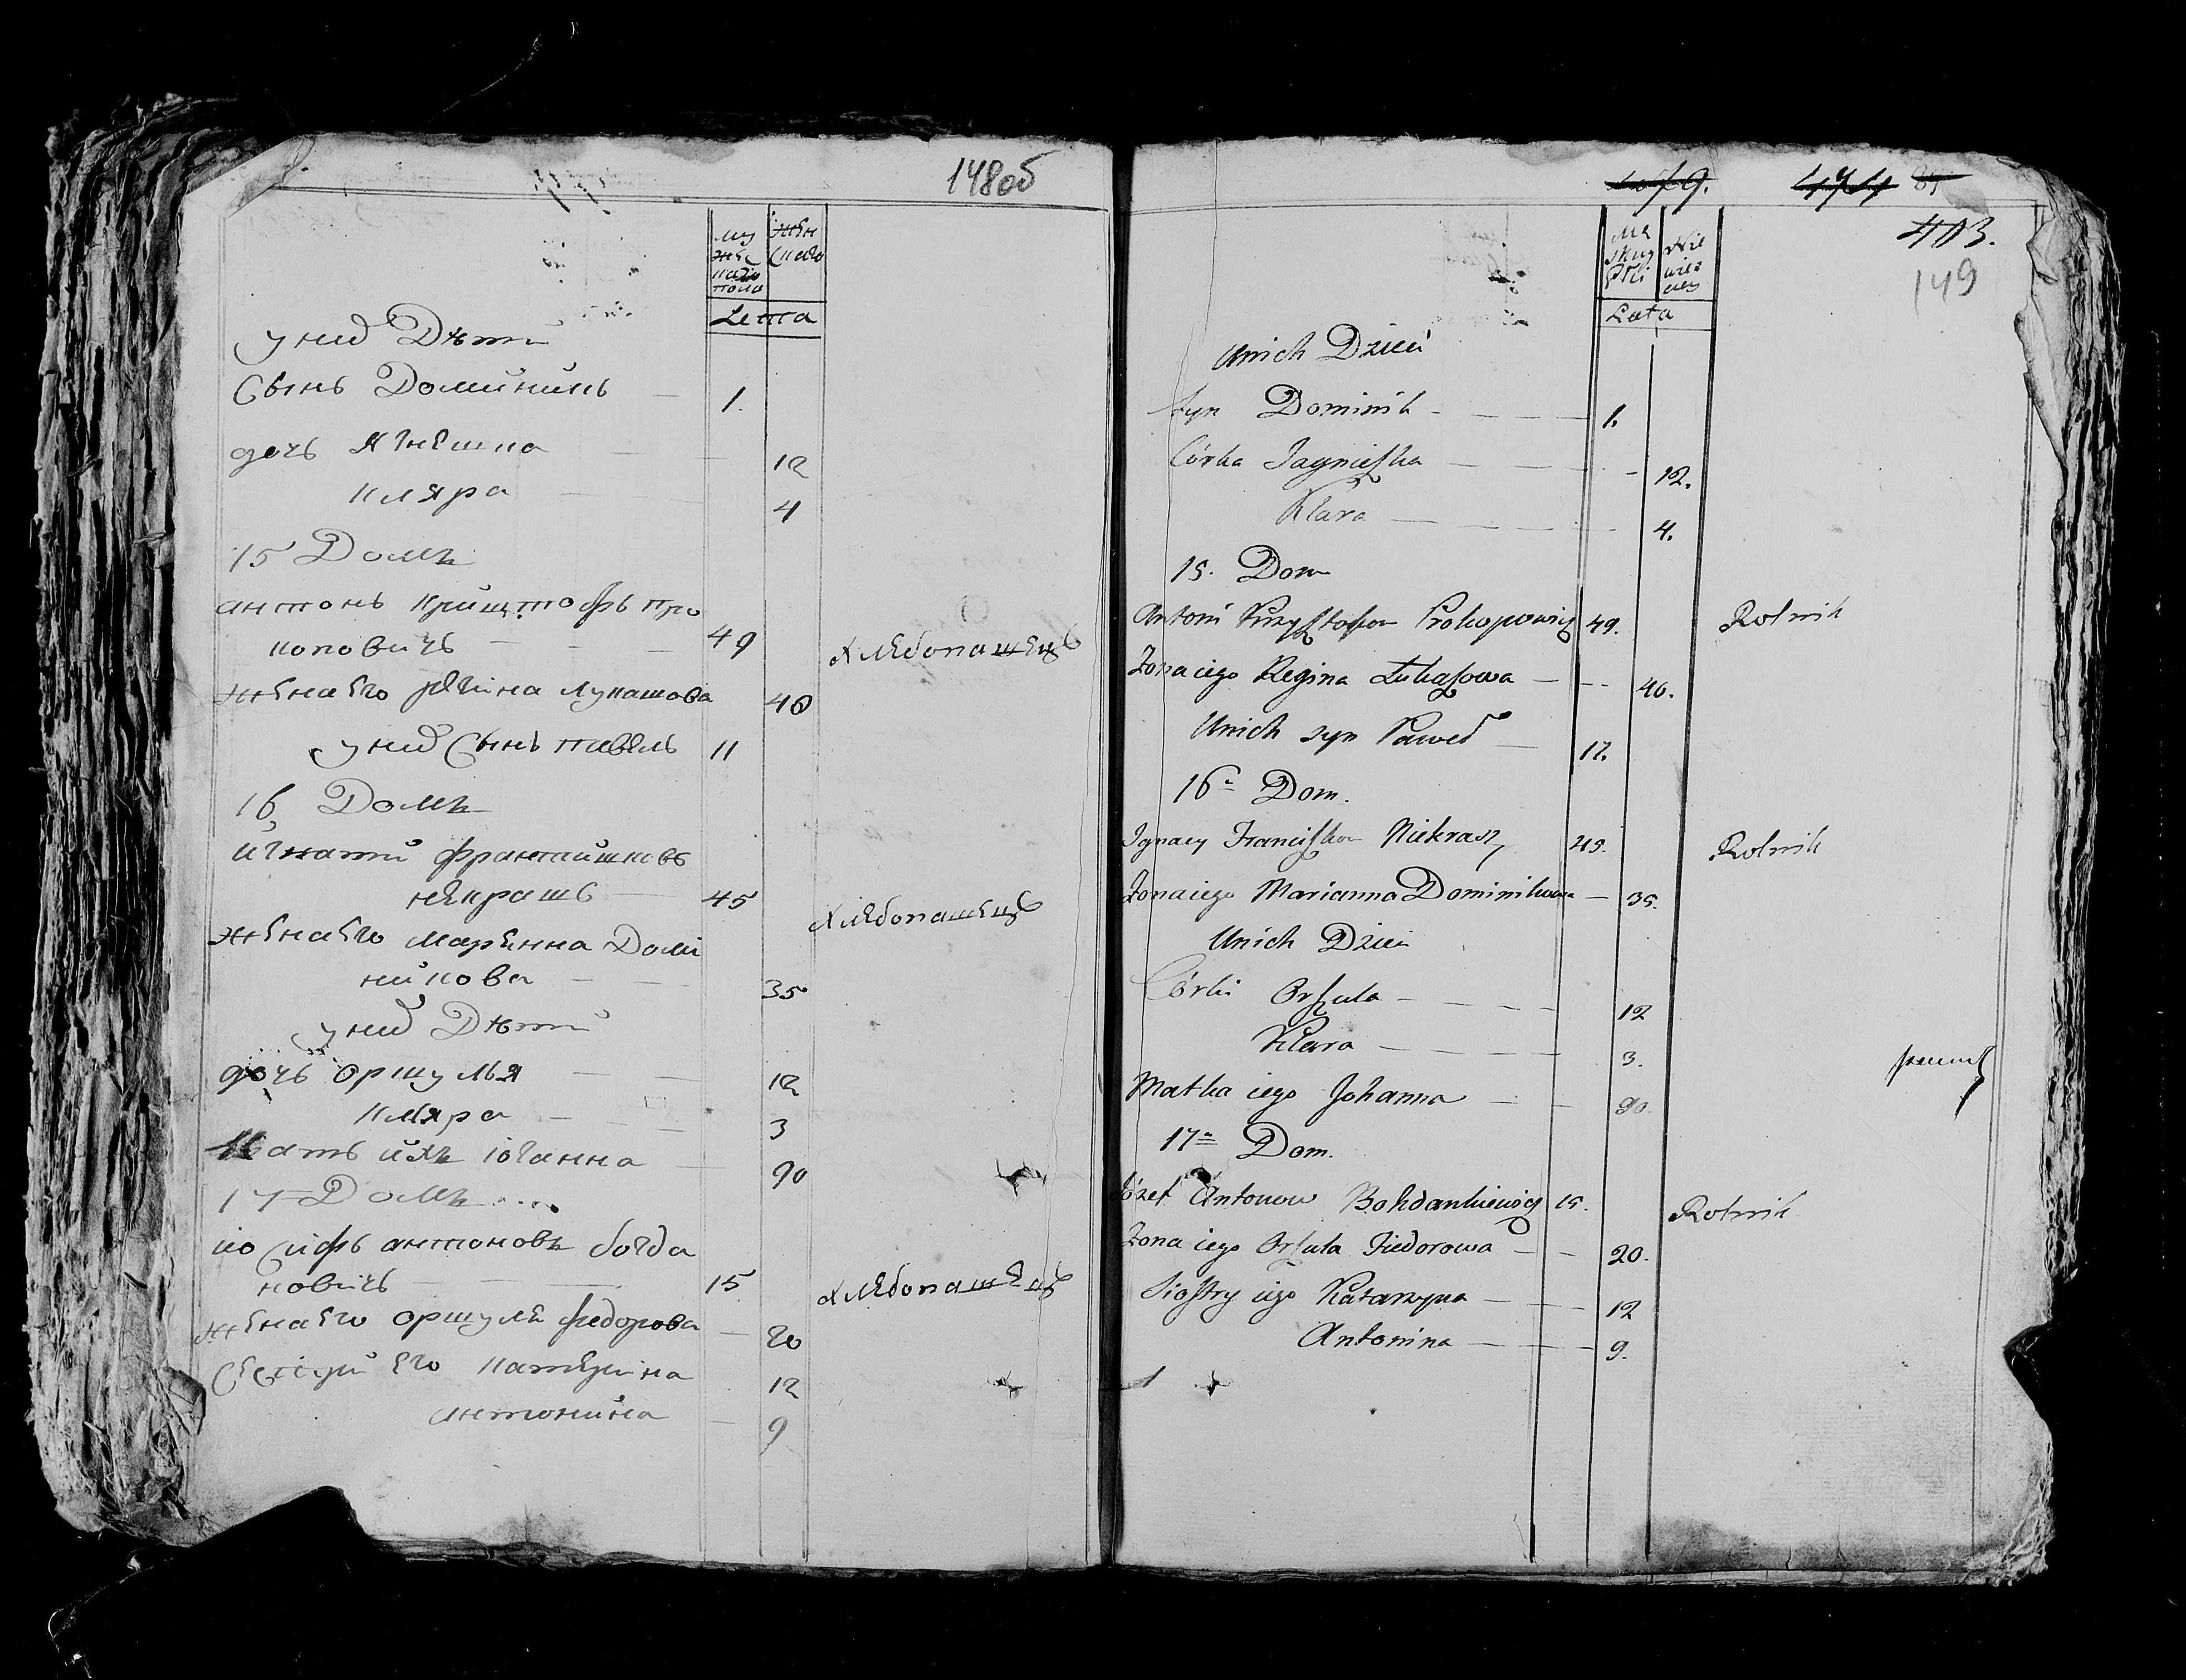 148об
му жес каго пола
жен скаго
Лета
у нид Дѣти
Сынь Доминикь 1.
дочь Ягнешка 12
Кляра 4
15 Домъ
антонь Криштофь про
коповичь 49 хлебопашець
жена его Регина Лукашова 40
у нид Сынь павель 11
16 Домъ
игнатий франтишковь
некрашь 45 хлебопашець
жена его Марьянна Доми
никова 35
у нид Дѣти
дочь оршуля 12
Кляра 3
Мать ихъ юганна 90
17 Домъ
иосифь антоновъ богда
новичь 15 хлебопашець
жена его оршуля федорова 20
Сестри его катерина 12
антонина 9
1079. 471 87
403.
149
Lata
Unich Dzieci
Syn Dominik 1.
Córka Jagnieszka 12.
Klara 4.
15. Dom
Antoni Krzysztofow Prokopowicz 49. Rolnik
Żona iego Regina Łukaszowa 40.
Unich syn Paweł 12.
16 Dom.
Ignacy Franciszkow Niekrasz 45. Rolnik
Żona iego Marianna Dominikowa 35.
Unich Dzieci
Córki Orszula 12
Klara 3.
Matka iego Johanna 90.
17 Dom.
Józef Antonow Bohdankiewicz 15. Rolnik
Żona iego Orszula Fiedorowa 20.
Siostry iego Katarzyna 12
Antonina 9.